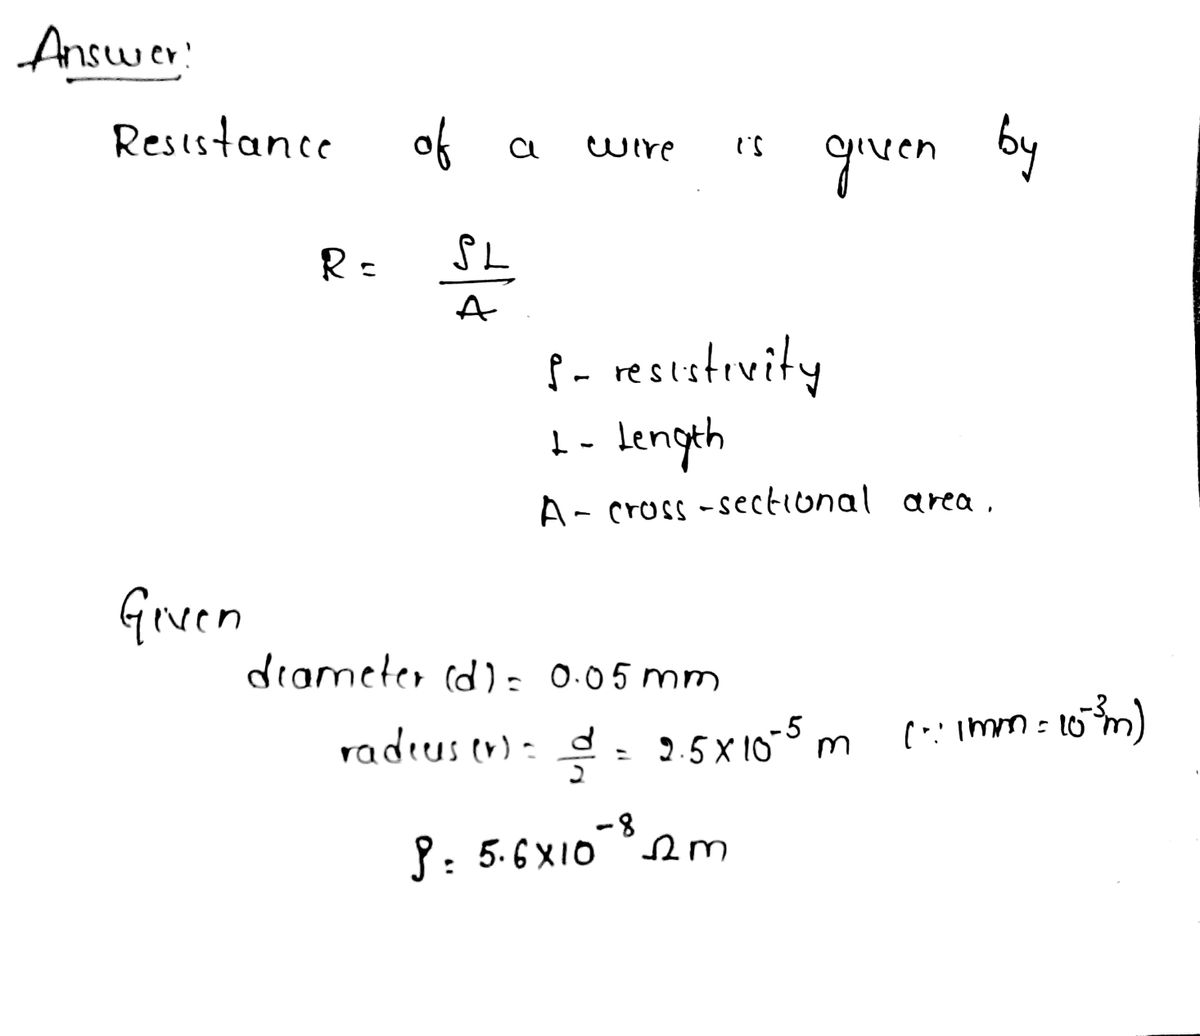 Answer:
Resistance of a wire is given by
R = ρL / A
ρ - resistivity
L - Length
A - cross-sectional area.
Given
diameter (d) = 0.05 mm
radius (r) = d/2 = 2.5 × 10⁻⁵ m (∵ 1mm = 10⁻³m)
ρ = 5.6 × 10⁻⁸ Ωm